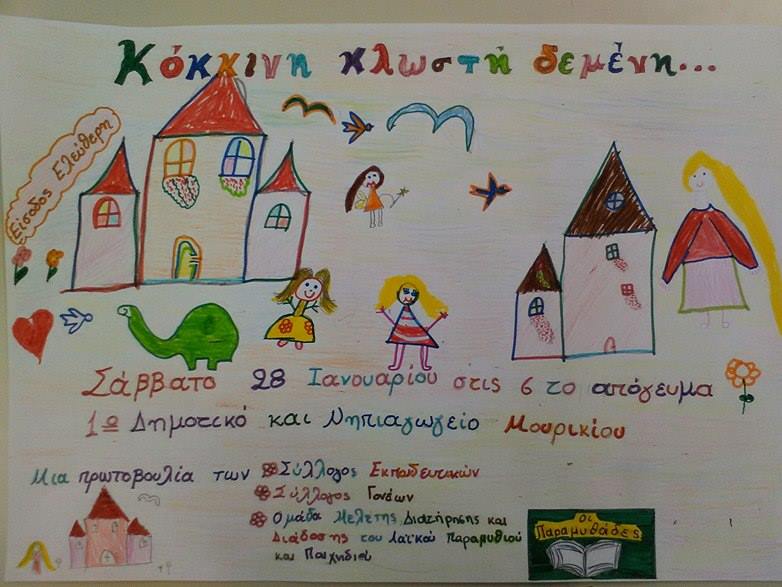 Κόκκινη κλωστή δεμένη...
Είσοδος Ελεύθερη
Σάββατο 28 Ιανουαρίου στις 6 το απόγευμα
1ο Δημοτικό και Νηπιαγωγείο Μουρικίου
Μια πρωτοβουλία των
Σύλλογος Εκπαιδευτικών
Σύλλογος Γονέων
Ομάδα Μελέτης, Διατήρησης και
Διάδοσης του Λαϊκού Παραμυθιού
και Παιχνιδιού
Οι
Παραμυθάδες